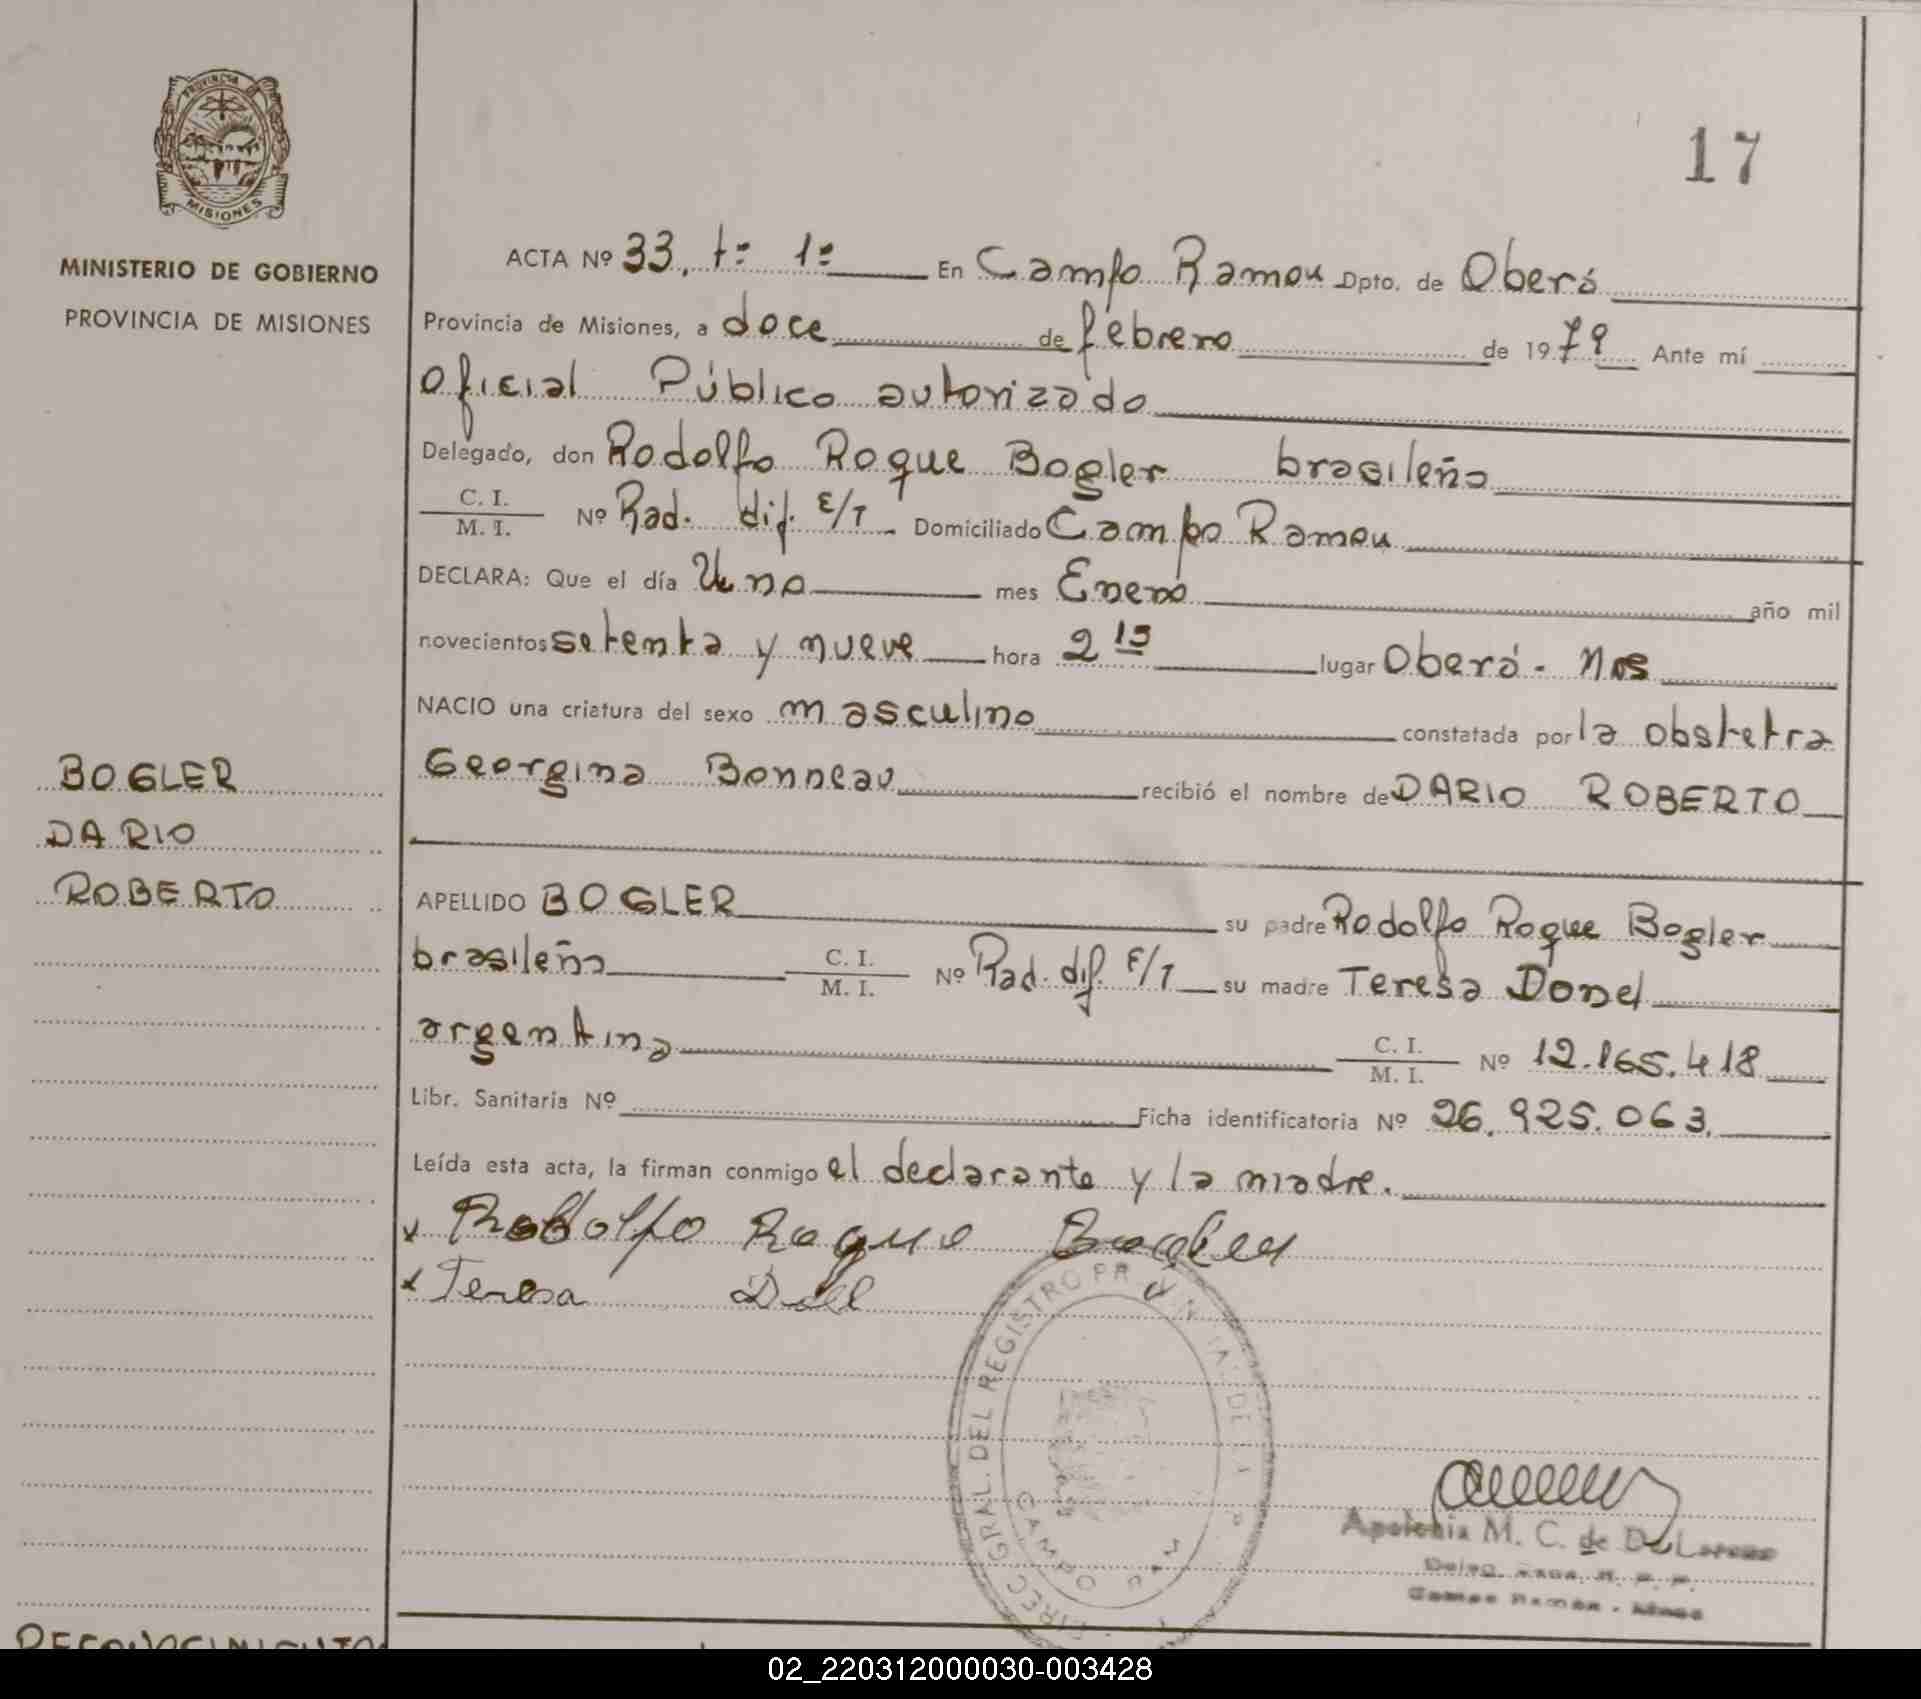 PROVINCIA DE
MISIONES
MINISTERIO DE GOBIERNO
PROVINCIA DE MISIONES
17
ACTA Nº 33, tº 1º En Campo Ramon Dpto. de Oberá
Provincia de Misiones, a doce de febrero de 1979 Ante mí
Oficial Público autorizado
Delegado, don Rodolfo Roque Bogler brasileño
C. I.
M. I. Nº Rad. dif. E/T Domiciliado Campo Ramon
DECLARA: Que el día Uno mes Enero año mil
novecientos setenta y nueve hora 2 15 lugar Oberá - Mnes
NACIO una criatura del sexo masculino constatada por la obstetra
Georgina Bonneau recibió el nombre de DARIO ROBERTO
BOGLER
DARIO
ROBERTO
APELLIDO BOGLER su padre Rodolfo Roque Bogler
brasileño C. I.
M. I. Nº Rad. dif. E/T su madre Teresa Donel
argentina C. I.
M. I. Nº 12.165.418
Libr. Sanitaria Nº Ficha identificatoria Nº 26.925.063.
Leída esta acta, la firman conmigo el declarante y la madre.
x Rodolfo Roque Bogler
x Teresa
DIREC GRAL. DEL REGISTRO
CAMPO
Apolonia M. C. de De
RECONOCIMIENTO
02_220312000030-003428